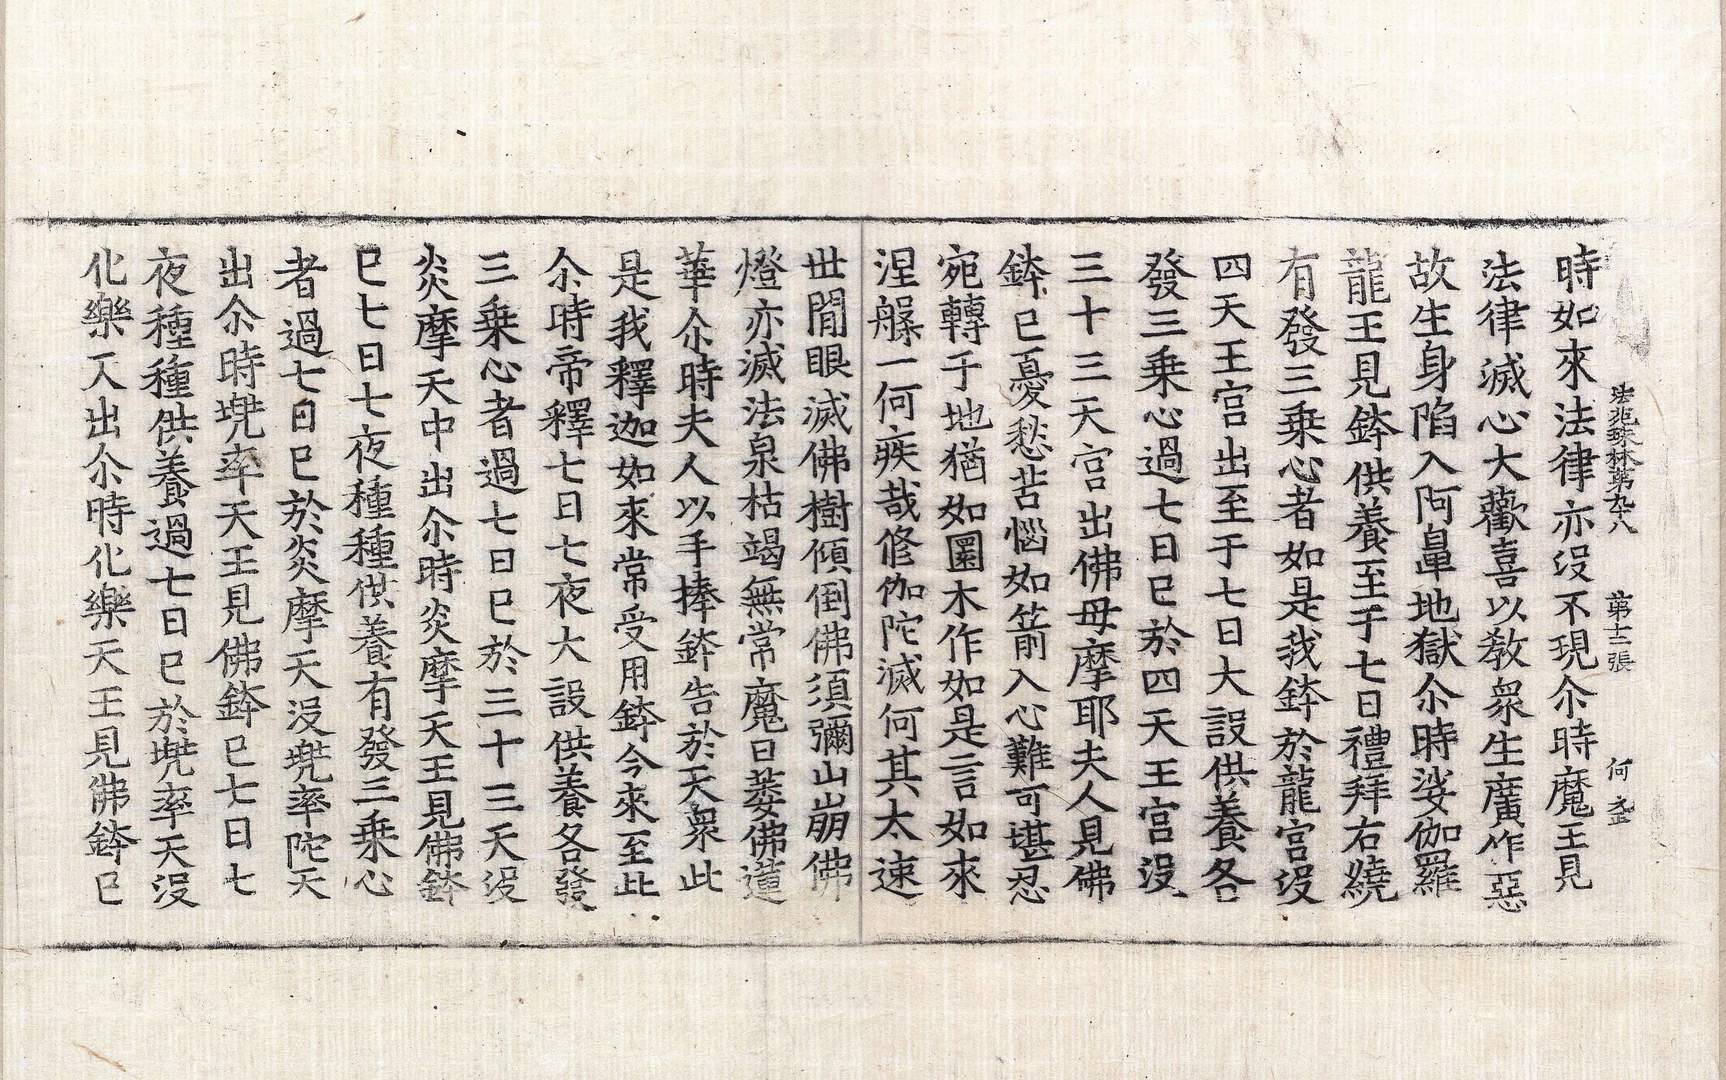 法苑珠林第九十八 第十二張 何
時如來法律亦沒不現尒時魔王見
法律滅心大歡喜以敎衆生廣作惡
故生身陷入阿鼻地獄尒時娑伽羅
龍王見鉢供養至于七日禮拜右繞
有發三乗心者如是我鉢於龍宮沒
四天王宮出至于七日大設供養各
發三乗心過七日已於四天王宮沒
三十三天宮出佛母摩耶夫人見佛
鉢已憂愁苦惱如箭入心難可堪忍
宛轉于地猶如圜木作如是言如來
涅槃一何疾哉修伽陀滅何其太速
世閒眼滅佛樹傾倒佛須彌山崩佛
燈亦滅法泉枯竭無常魔日萎佛蓮
華尒時夫人以手捧鉢告於天衆此
是我釋迦如來常受用鉢今來至此
尒時帝釋七日七夜大設供養各發
三乗心者過七日已於三十三天沒
炎摩天中出尒時炎摩天王見佛鉢
已七日七夜種種供養有發三乗心
者過七日已於炎摩天沒兠率陀天
出尒時兠率天王見佛鉢已七日七
夜種種供養過七日已於兠率天沒
化樂天出尒時化樂天王見佛鉢已